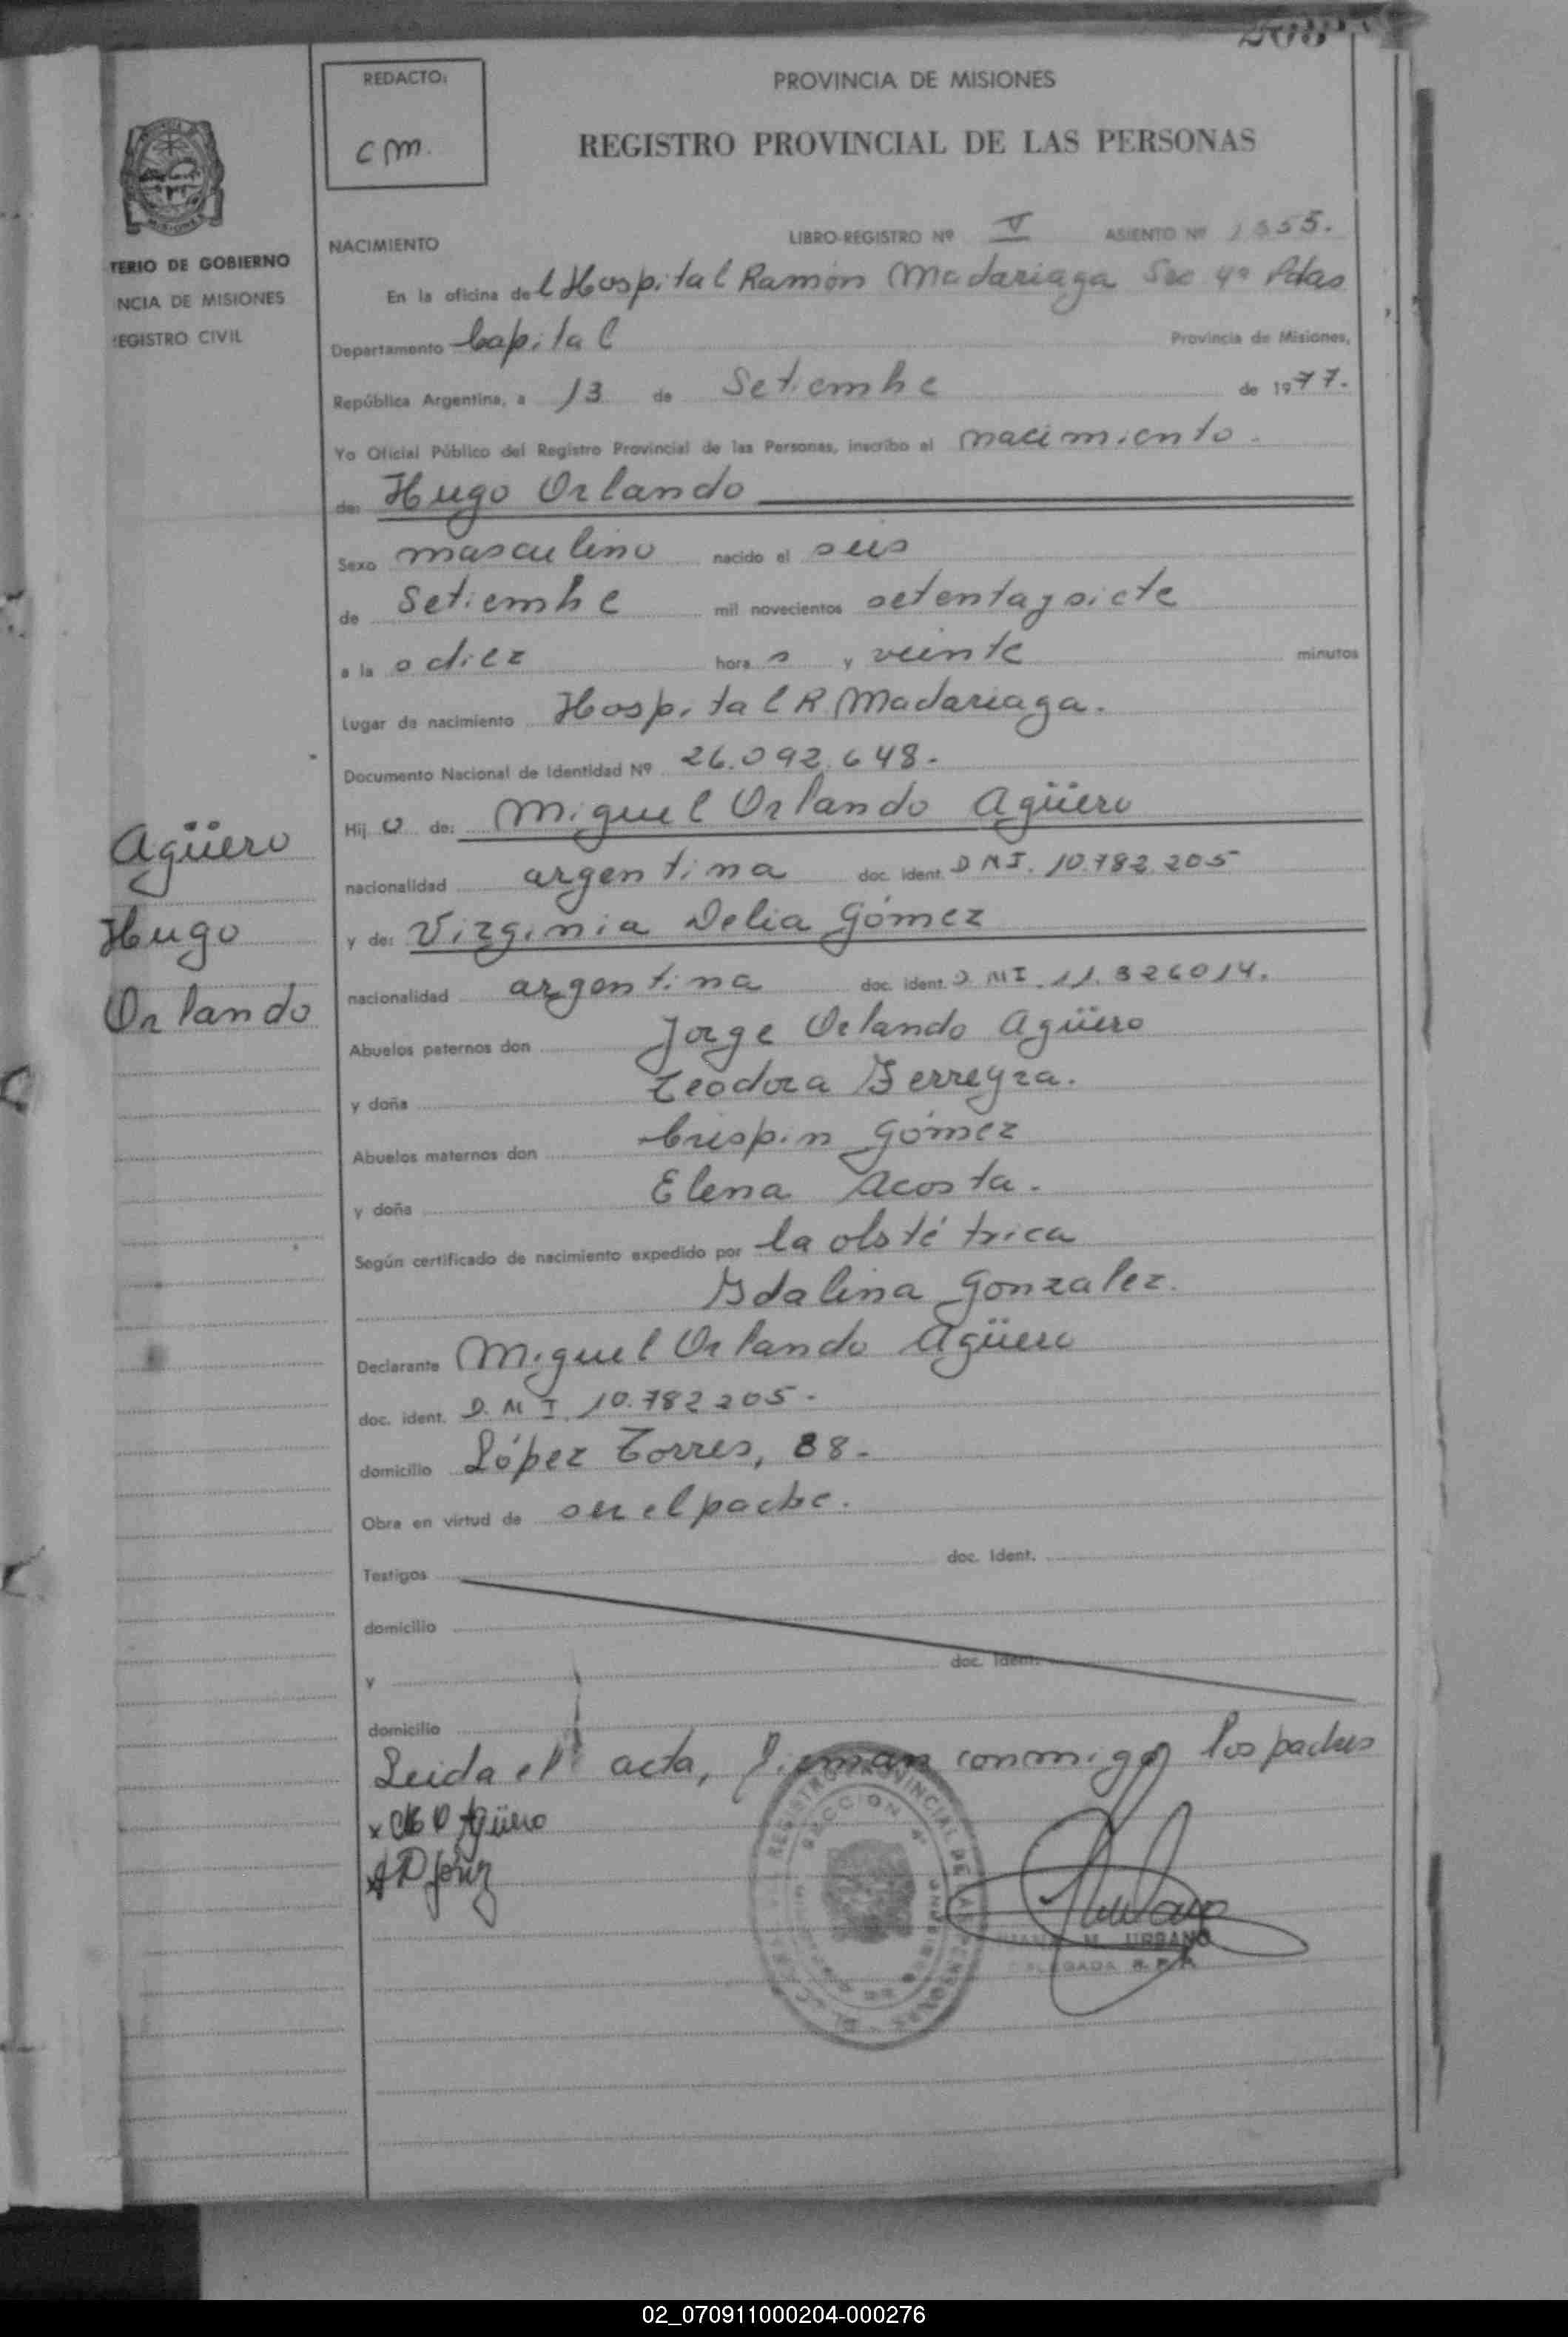 REDACTO:
cm.
PROVINCIA DE MISIONES
REGISTRO PROVINCIAL DE LAS PERSONAS
MISIONES
TERIO DE GOBIERNO
NCIA DE MISIONES
REGISTRO CIVIL
NACIMIENTO LIBRO-REGISTRO Nº V ASIENTO Nº 1355.
En la oficina del Hospital Ramón Madariaga Sec 4ª Pdas
Departamento Capital Provincia de Misiones,
República Argentina, a 13 de Setiembre de 1977.
Yo Oficial Público del Registro Provincial de las Personas, inscribo el nacimiento.
de: Hugo Orlando
Sexo masculino nacido el seis
de Setiembre mil novecientos setenta y siete
a la s diez hora s y veinte minutos
Lugar de nacimiento Hospital R Madariaga.
Documento Nacional de Identidad Nº 26.092.648.
Hij o de: Miguel Orlando Agüero
nacionalidad argentina doc. ident. DNI. 10.782.205
y de: Virginia Delia Gómez
nacionalidad argentina doc. ident. D.NI. 11.326014.
Abuelos paternos don Jorge Orlando Agüero
y doña Teodora Ferreyra.
Abuelos maternos don Crispin Gómez
y doña Elena Acosta.
Según certificado de nacimiento expedido por la obstétrica
Idalina Gonzalez.
Declarante Miguel Orlando Agüero
doc. ident. D.N I. 10.782205.
domicilio López Torres, 88.
Obra en virtud de ser el padre.
Testigos doc. Ident.
domicilio
y doc. Ident.
domicilio
Leida el acta, firman conmigo los padres
Agüero
REGISTRO PROVINCIAL DE LAS PERSONAS
SECCION 4ª
M. URBANO
DELEGADA R.P.P.
Agüero
Hugo
Orlando
02_070911000204-000276